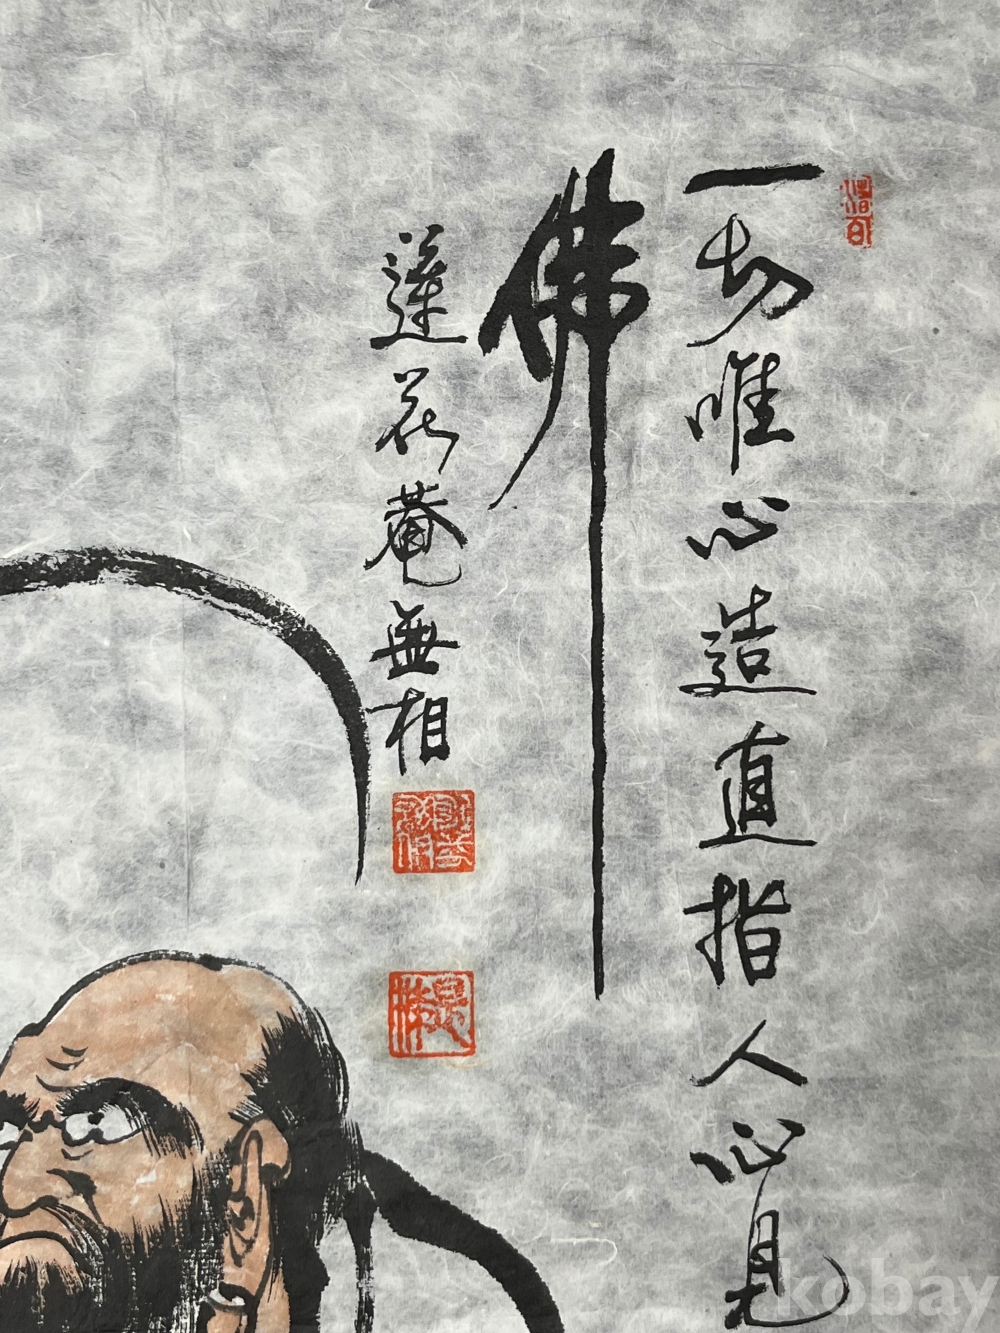 一切唯心造直指人心見
佛
蓮花菴無相
kobay